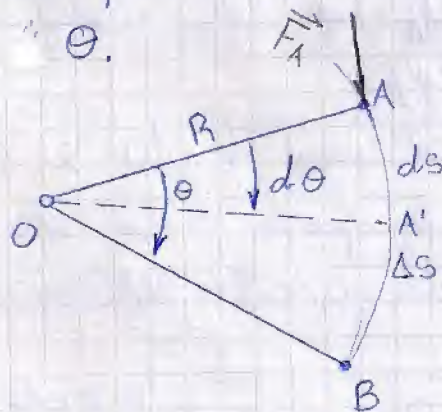 θ.
F₁
A
R
dS
θ
dθ
O
A'
ΔS
B